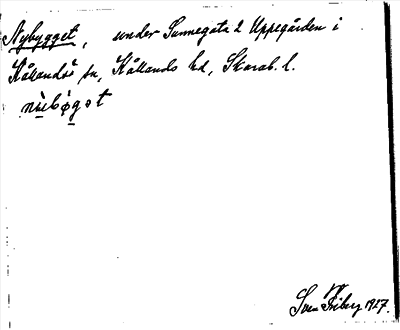 Nybygget, under Sunnegata 2 Uppegården i
Kållandsö sn, Kållands hd, Skarab. l.
nẏbø̣gət
Sven Friberg 1927.